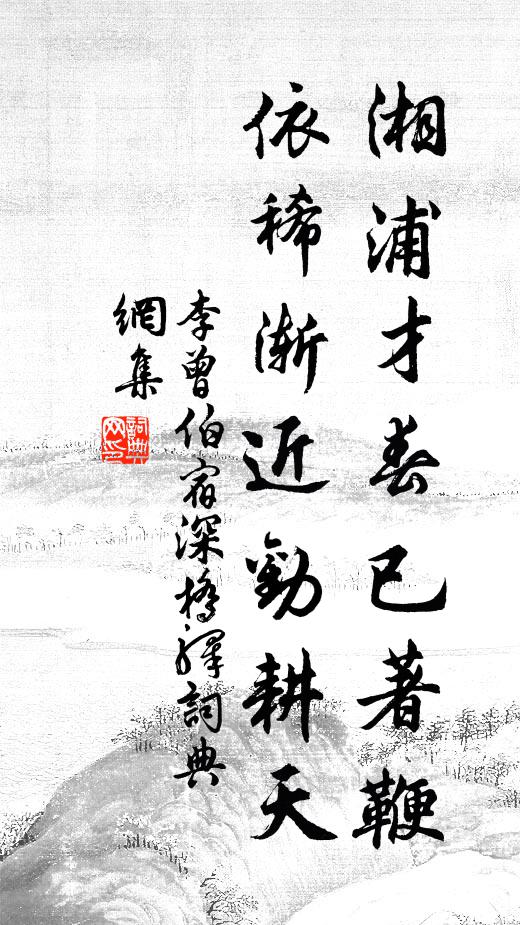 湘浦才春已著鞭
依稀渐近劝耕天
李曾伯宿深桥驿词典
網集
詞典
网印